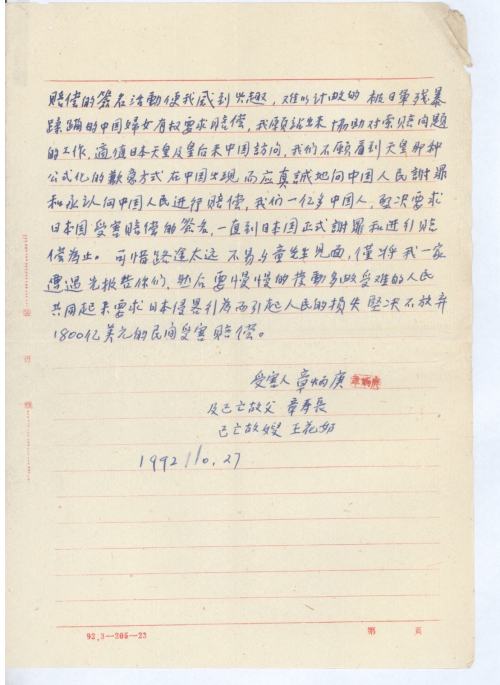 赔偿的签名活動使我感到兴趣，难以计数的被日軍残暴
蹂躏的中国婦女有权要求赔偿，我願站出来協助对索赔问题
的工作，適值日本天皇及皇后来中国訪问，我们不願看到天皇那种
公式化的歉意方式在中国出现而应真誠地向中国人民謝罪
和承认向中国人民进行赔偿，我们一亿多中国人，坚决要求
日本国受害赔偿的簽名，一直到日本国正式謝罪和进引赔
偿為止。可惜路途太远不易与童先生見面，僅将我一家
遭遇先报告你们，然后要慢慢的發動多数受难的人民
共同起来要求日本侵畧引為而引起人民的損失堅决不放弃
1800亿美元的民间受害赔偿。
受害人 章炳庚
及已亡故父 章寿長
已亡故嫂 王花奶
1992/10.27
92.3—205—23
第 页